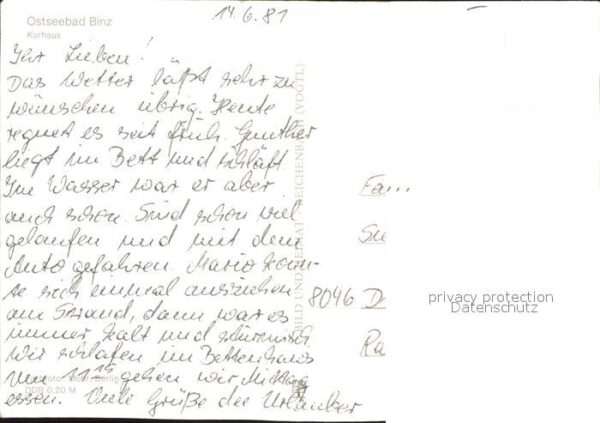 Ostseebad Binz
Kurhaus
14.6.81
Ihr Lieben!
Das Wetter läßt sehr zu
wünschen übrig. Heute
regnet es seit früh. Gunther
liegt im Bett und schläft
Im Wasser war er aber
auch schon. Sind schon viel
gelaufen und mit dem
Auto gefahren. Mario konn-
te sich einmal ausziehen
am Strand, dann war es
immer kalt und stürmisch
Wir schlafen im Bettenhaus
Um 11.15 gehen wir Mittag
essen. Viele Grüße die Urlauber
DDR 0,20 M
BILD UND HEIMAT REICHENBACH (VOGTL)
Fam
8046 D
Ra
privacy protection
Datenschutz